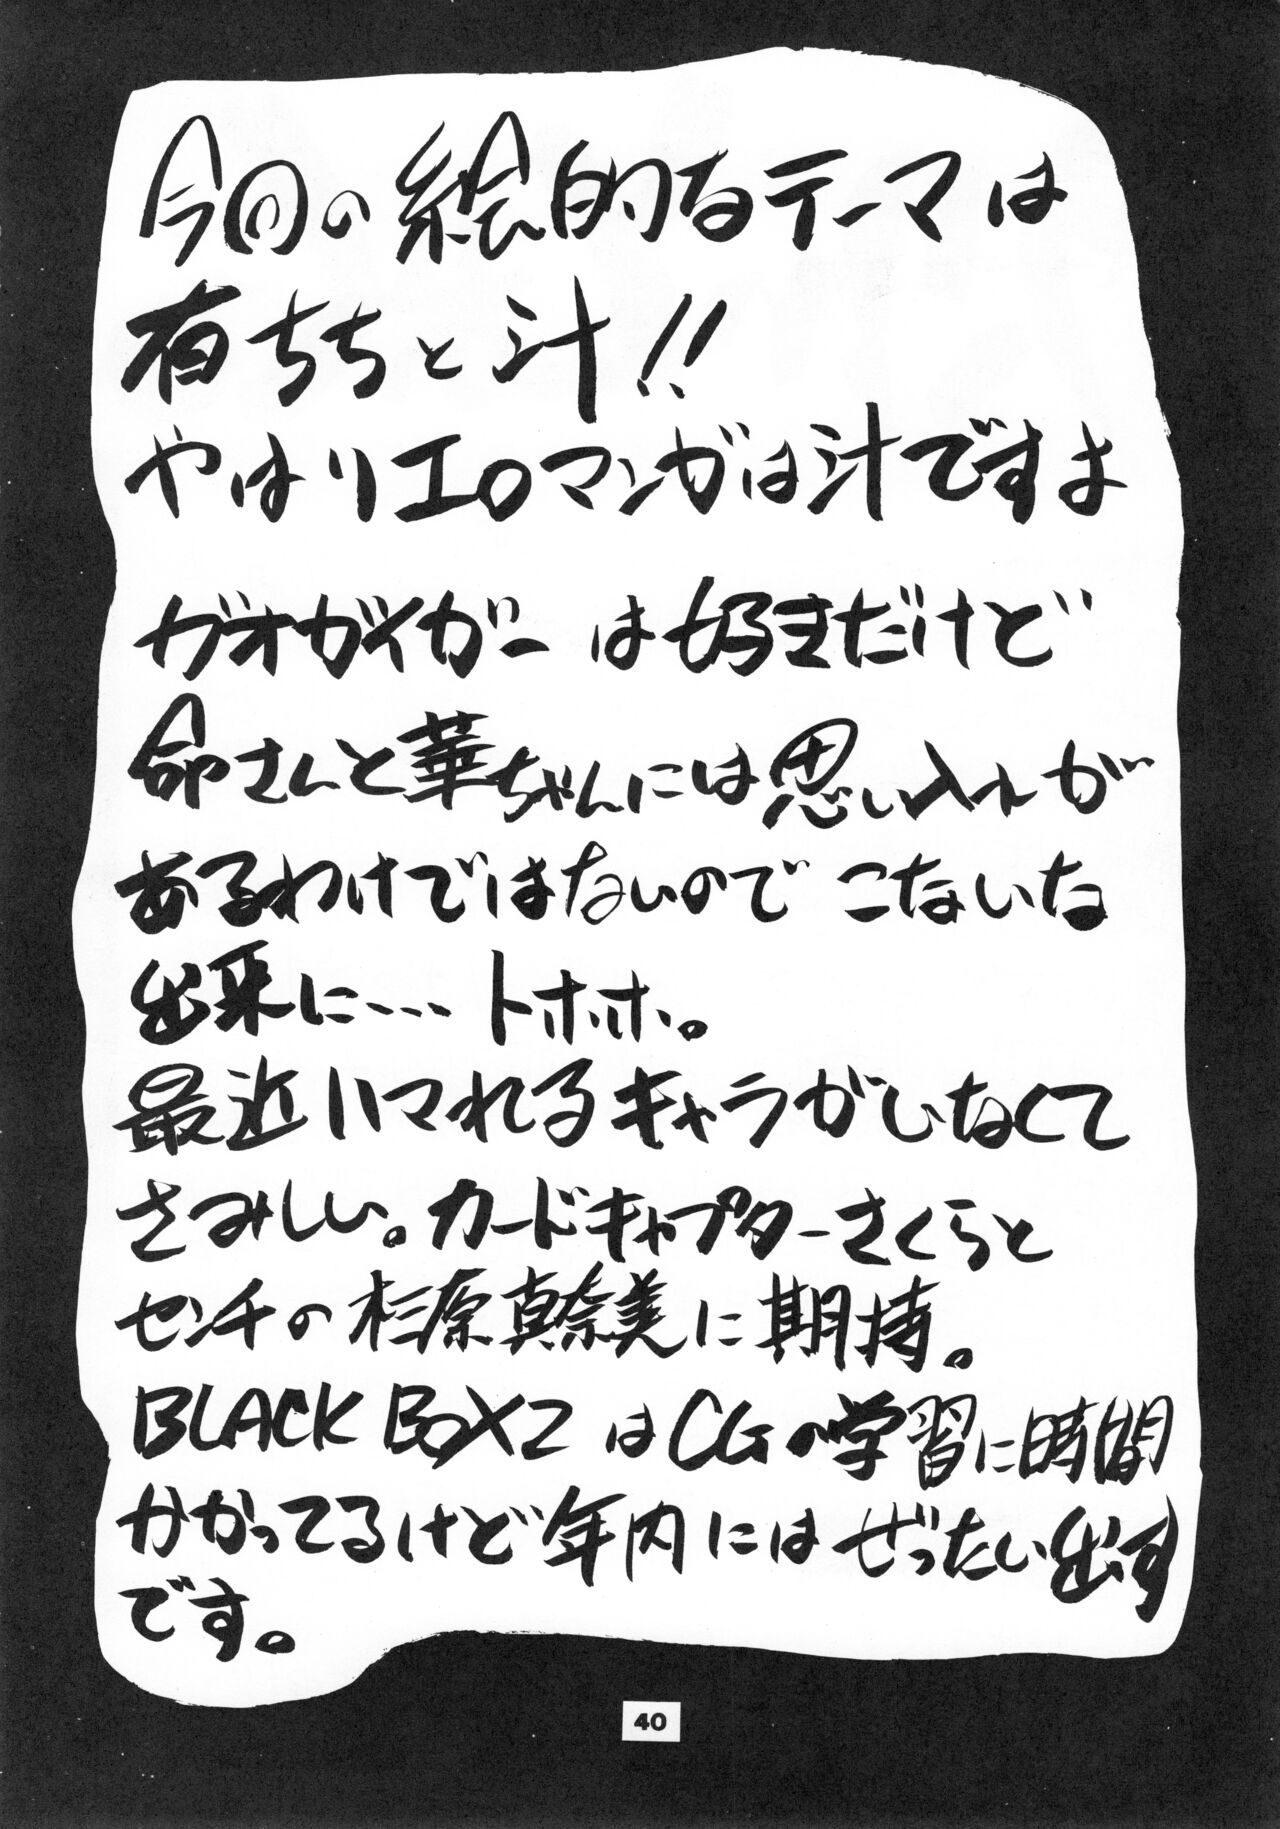 今回の絵的なテーマは
有ちちと汁!!
やはりエロマンガは汁ですよ
ガオガイガーは好きだけど
命さんと華ちゃんには思い入れが
あるわけではないので こないな
出来に… トホホ。
最近ハマれるキャラがいなくて
さみしい。カードキャプターさくらと
センチの杉原真奈美に期待。
BLACK BOX2はCGの学習に時間
かかってるけど年内にはぜったい出す
です。
40